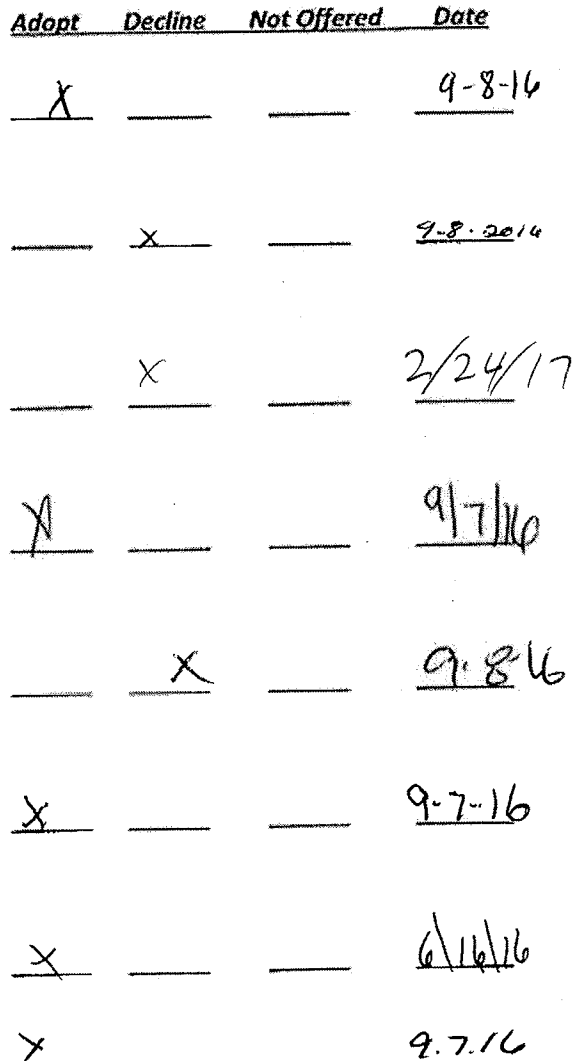 Adopt Decline Not Offered Date
X 9-8-16
X 9-8-2016
X 2/24/17
X 9/7/16
X 9-8-16
X 9-7-16
X 6\16\16
X 9.7.16